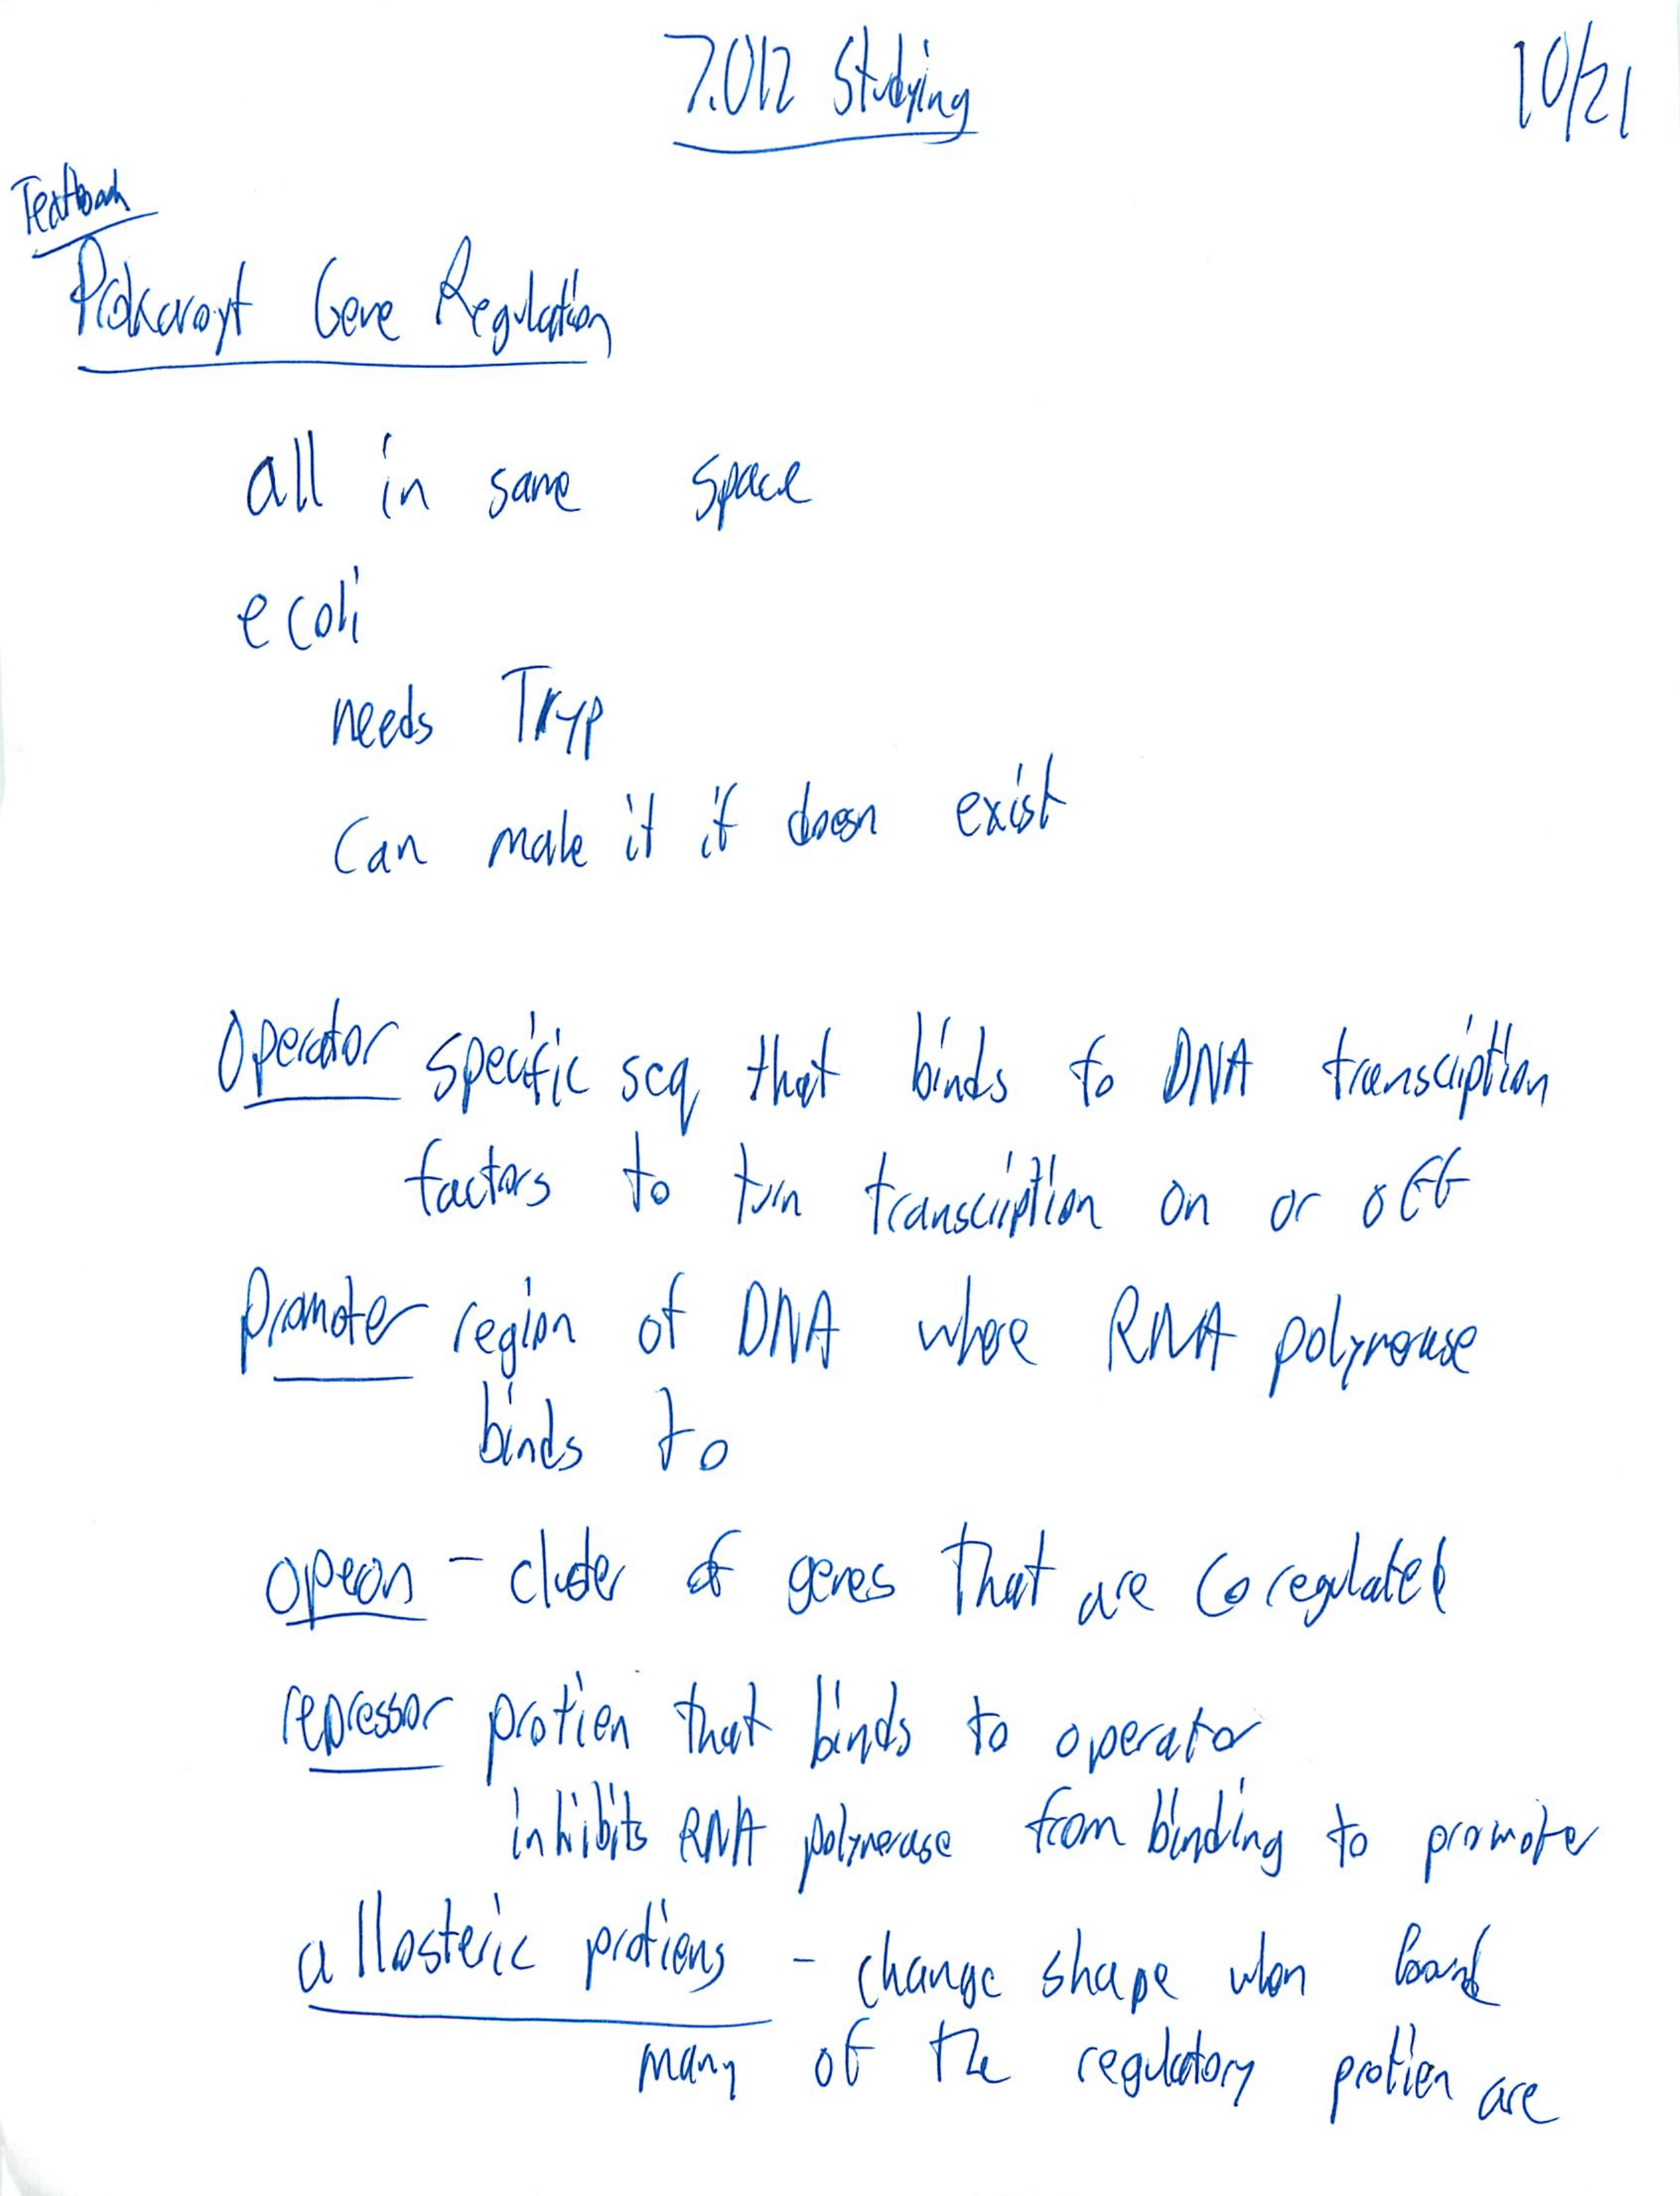 7.012 Studying
10/21
Textbook
Prokaroyt Gene Regulation
all in same space
ecoli
needs Tryp
can make it if doesn exist
Operator specific seq that binds to DNA transcription
factors to turn transcription on or off
Promoter region of DNA where RNA polymerase
binds to
operon - cluster of genes that are coregulated
repressor protien that binds to operator
inhibits RNA polymerase from binding to promoter
allosteric protiens - change shape when bound
many of the regulatory protien are